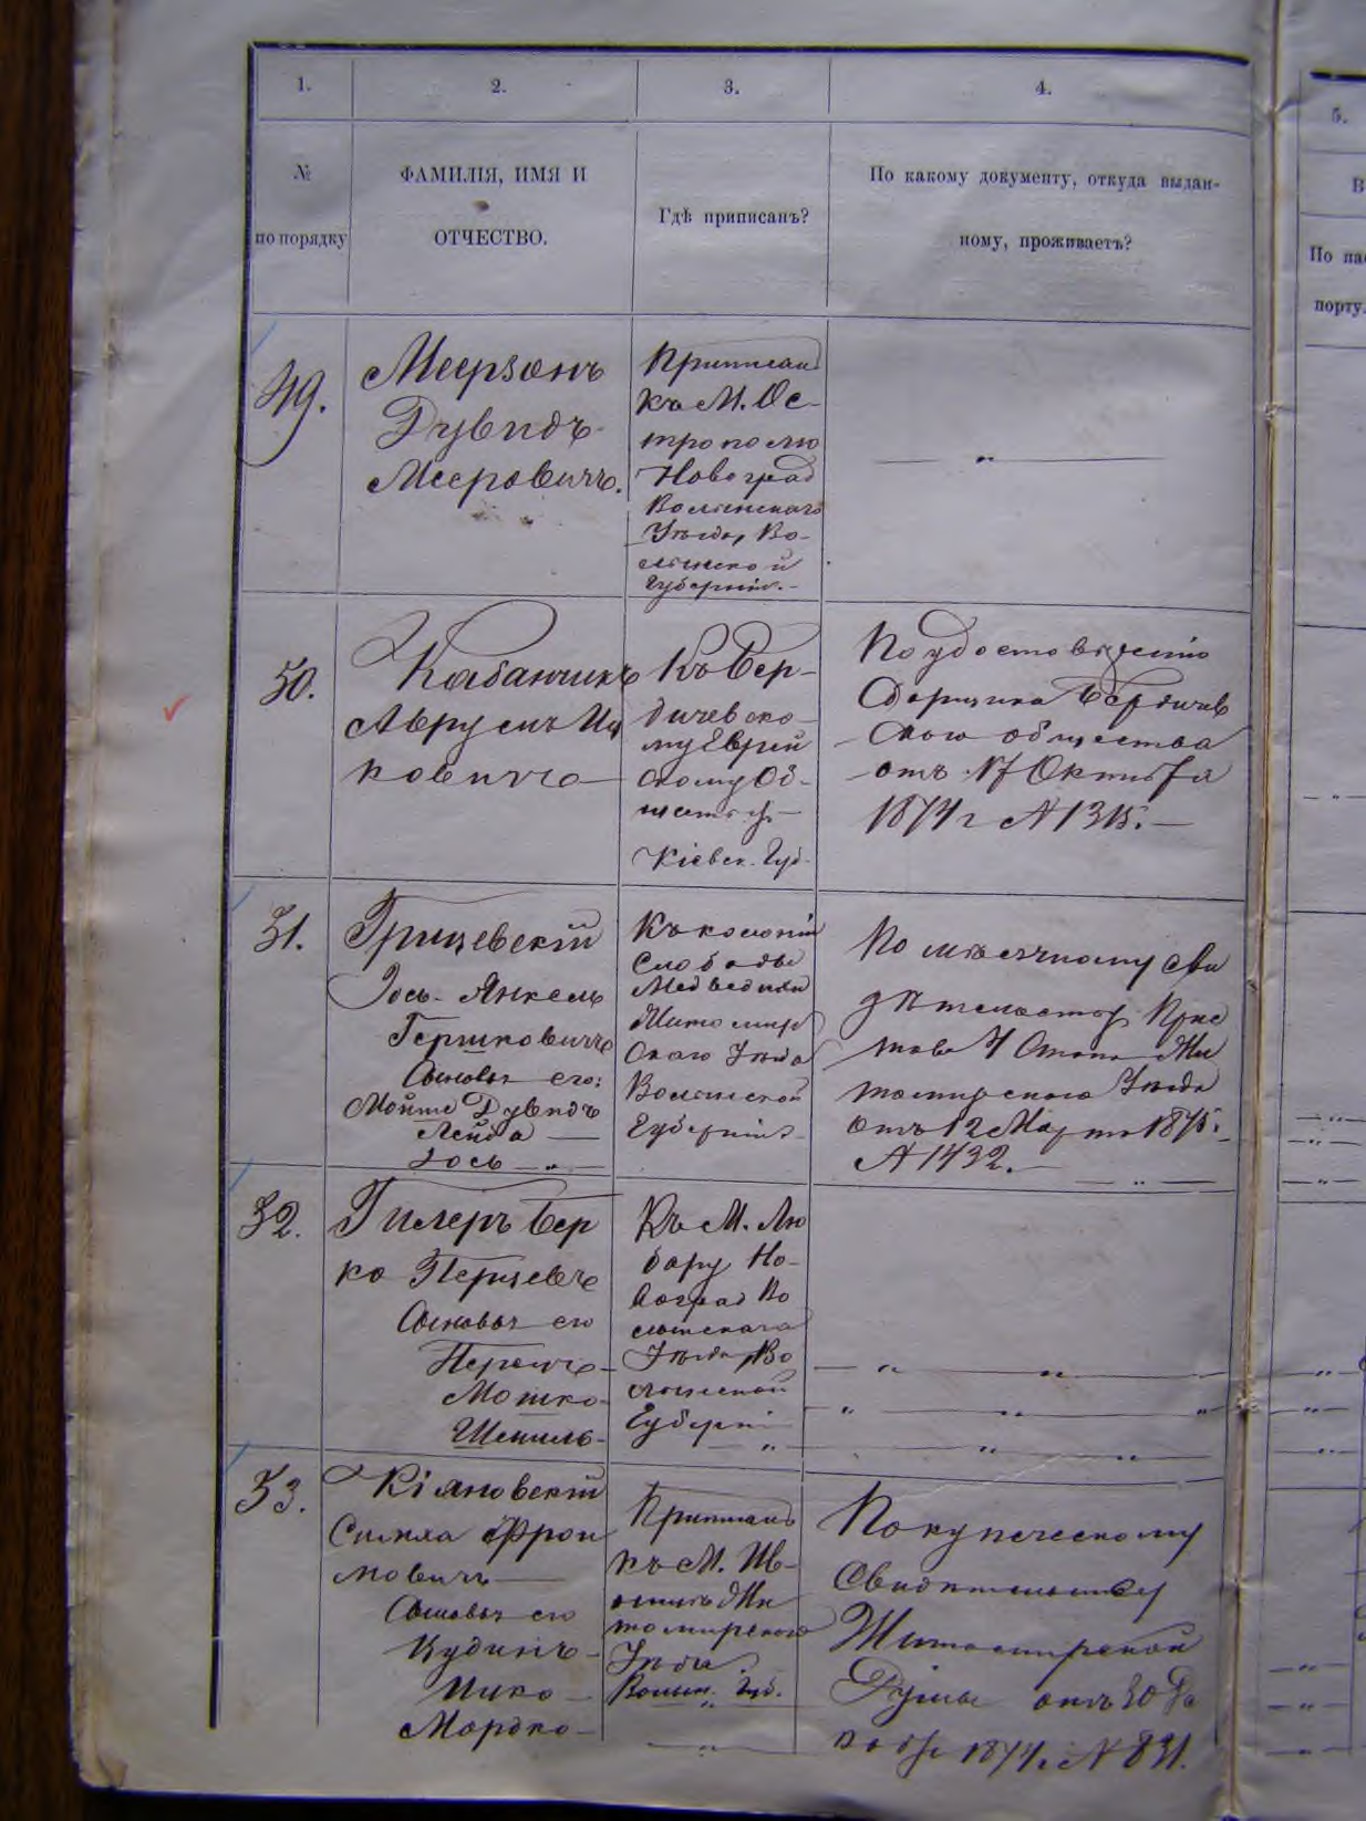 1.
2.
3.
4.
5.
№
по порядку
ФАМИЛІЯ, ИМЯ И
ОТЧЕСТВО.
Гдѣ приписанъ?
По какому документу, откуда выдан-
ному, проживаетъ?
По пас
порту.
49.
Меерзонъ
Дувидъ
Мееровичъ.
Приписан
къ М. Ос-
трополю
Новоград
Волынскаго
Уѣзда, Во-
лынской
Губерніи.
50.
Кабанчикъ
Аврумъ Иц
ковичъ
Къ Бер-
дичевско-
му Еврей
скому Об-
ществу
Кіевск. Губ.
По удостовѣренію
Сборщика Бердичев
скаго общества
отъ 17 Октября
1874 г №1315.
51.
Грищевскій
Іось-Янкель
Гершковичъ
Сыновья его:
Мойше Дувидъ
Лейба
Іось
Къ колоніи
Слободы
Медведихи
Житомир
скаго Уѣзда
Волынской
Губерніи
По мѣсячному сви
дѣтельству Прис
това 4 Стана Жи
томирскаго Уѣзда
отъ 12 Марта 1875 г.
№ 1432.
52.
Гилеръ Бер
ко Перцевъ
Сыновья его
Перецъ
Мошко
Шмиль
Къ М. Лю
бару Но-
воград Во
лынскаго
Уѣзда, Во
лынской
Губерніи
53.
Кіяновскій
Симха Фрои
мовичъ
Сыновья его
Кудикъ
Ицко
Мордко
Приписанъ
къ М. Ив-
ницѣ Жи
томирскаго
Уѣзда
Волын. Губ.
По купеческому
Свидѣтельству
Житомирской
Думы отъ 30 Де
кабр 1874 г № 831.